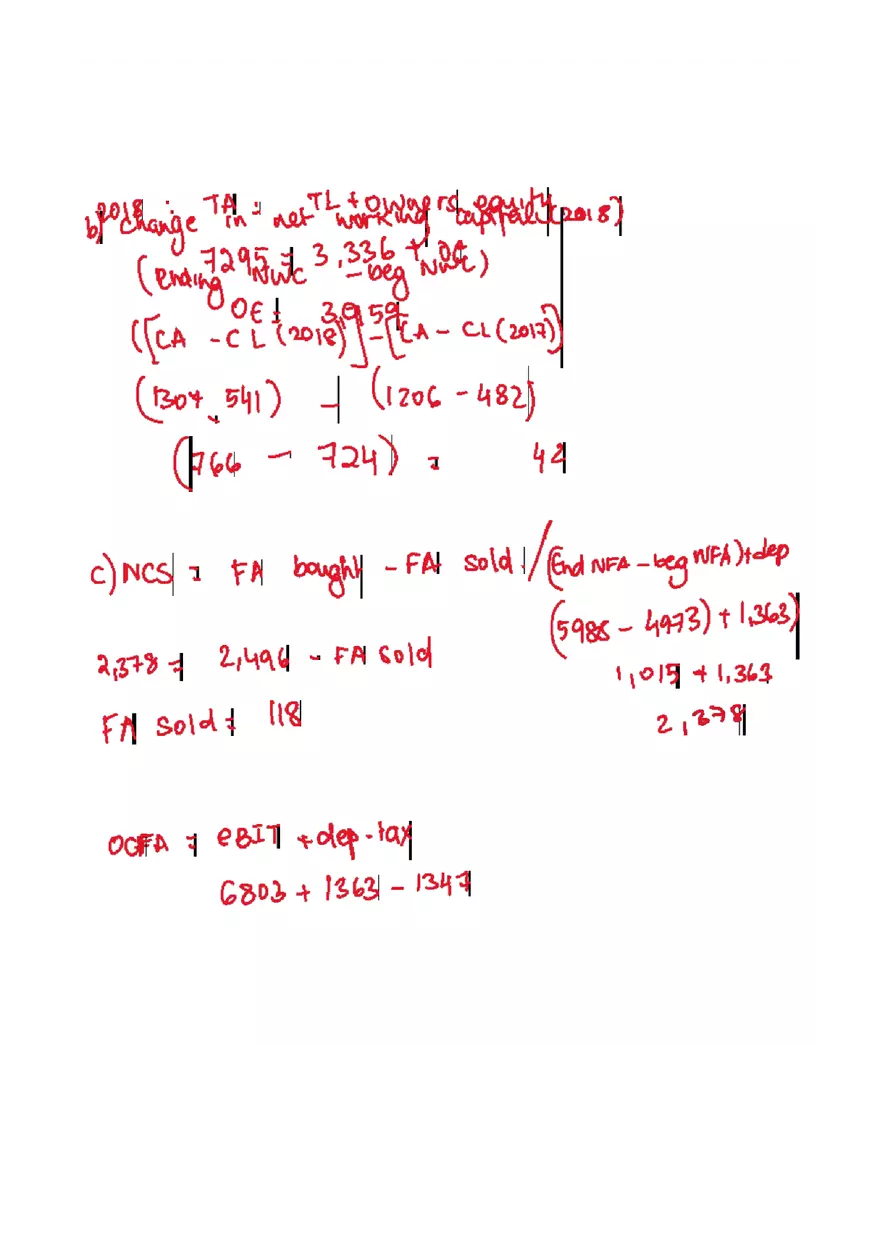 2018 : TA = TL + owners equity
b) change in net working capital (2018)
7295 = 3,336 + OE
(ending NWC - beg NWC)
OE = 3,959
([CA - CL (2018)] - [CA - CL (2017)])
(1307 - 541) - (1206 - 482)
(766 - 724) = 42
c) NCS = FA bought - FA sold / (End NFA - beg NFA) + dep
(5988 - 4973) + 1,363)
2,378 = 2,496 - FA sold
1,015 + 1,363
FA sold = 118
2,378
OCFA = eBIT + dep - tax
6803 + 1363 - 1347